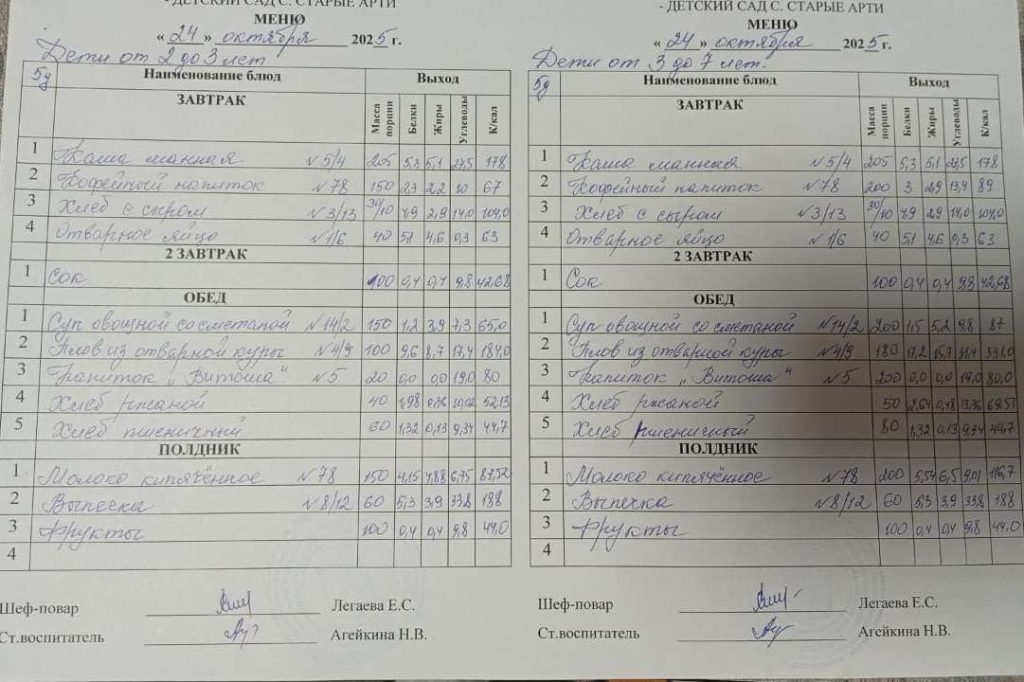 - ДЕТСКИЙ САД С. СТАРЫЕ АРТИ
МЕНЮ
« 24 » октября 2025 г.
Дети от 2 до 3 лет
5д Наименование блюд Выход
ЗАВТРАК Масса порции Белки Жиры Углеводы К/кал
1 Каша манная №5/4 205 5,3 5,1 27,5 178
2 Кофейный напиток №78 150 2,3 2,2 10 67
3 Хлеб с сыром №3/13 30/10 4,9 2,9 14,0 104,0
4 Отварное яйцо №1/6 40 5,1 4,6 0,3 63
2 ЗАВТРАК
1 Сок 100 0,4 0,4 9,8 42,68
ОБЕД
1 Суп овощной со сметаной №14/2 150 1,2 3,9 7,3 65,0
2 Плов из отварной куры №4/9 100 9,6 8,7 17,4 184,0
3 Напиток „Витоша" №5 20 0,0 0,0 19,0 80
4 Хлеб ржаной 40 1,98 0,36 10,02 52,13
5 Хлеб пшеничный 60 1,32 0,13 9,34 44,7
ПОЛДНИК
1 Молоко кипячёное №78 150 4,15 4,88 6,75 87,52
2 Выпечка №8/12 60 5,3 3,9 33,8 188
3 Фрукты 100 0,4 0,4 9,8 44,0
4
Шеф-повар Легаева Е.С.
Ст.воспитатель Агейкина Н.В.
- ДЕТСКИЙ САД С. СТАРЫЕ АРТИ
МЕНЮ
« 24 » октября 2025 г.
Дети от 3 до 7 лет.
5д Наименование блюд Выход
ЗАВТРАК Масса порции Белки Жиры Углеводы К/кал
1 Каша манная №5/4 205 5,3 5,1 27,5 178
2 Кофейный напиток №78 200 3 2,9 13,4 89
3 Хлеб с сыром №3/13 30/10 4,9 2,9 14,0 104,0
4 Отварное яйцо №1/6 40 5,1 4,6 0,3 63
2 ЗАВТРАК
1 Сок 100 0,4 0,4 9,8 42,68
ОБЕД
1 Суп овощной со сметаной №14/2 200 1,5 5,2 9,8 87
2 Плов из отварной куры №4/9 180 17,2 15,7 31,4 331,0
3 Напиток „Витоша" №5 200 0,0 0,0 19,0 80,0
4 Хлеб ржаной 50 2,64 0,48 13,36 69,51
5 Хлеб пшеничный 80 1,32 0,13 9,34 44,7
ПОЛДНИК
1 Молоко кипячёное №78 200 5,54 6,5 9,01 116,7
2 Выпечка №8/12 60 5,3 3,9 33,8 188
3 Фрукты 100 0,4 0,4 9,8 44,0
4
Шеф-повар Легаева Е.С.
Ст.воспитатель Агейкина Н.В.